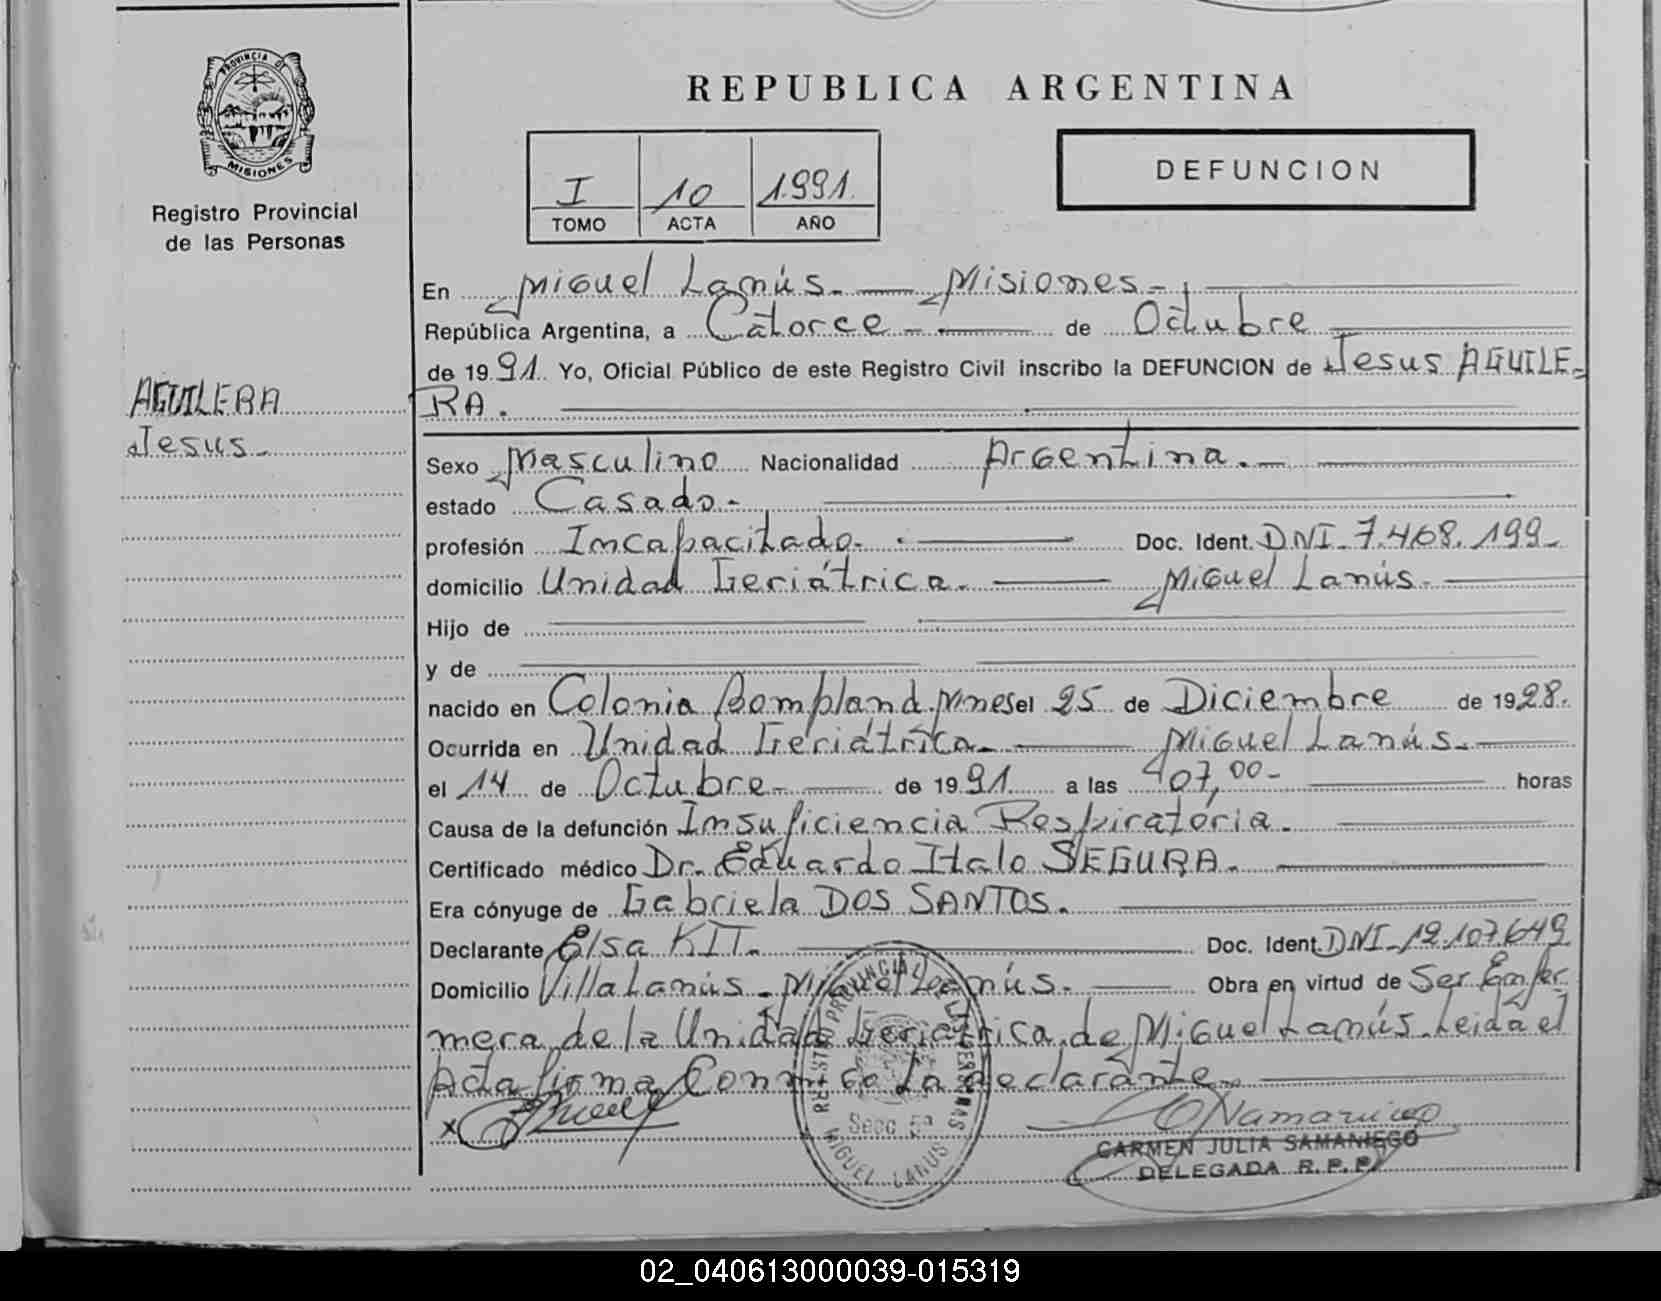 PROVINCIA DE
MISIONES
Registro Provincial
de las Personas
AGUILERA
Jesus.
REPUBLICA ARGENTINA
I 10 1.991.
TOMO ACTA AÑO
DEFUNCION
En Miguel Lanús. Misiones.
República Argentina, a Catorce de Octubre
de 1991. Yo, Oficial Público de este Registro Civil inscribo la DEFUNCION de Jesus AGUILE-
RA.
Sexo Masculino Nacionalidad Argentina.
estado Casado.
profesión Incapacitado. Doc. Ident. DNI. 7.468.199.
domicilio Unidad Geriátrica. Miguel Lanús.
Hijo de
y de
nacido en Colonia Bompland. Mnes el 25 de Diciembre de 1928.
Ocurrida en Unidad Geriátrica. Miguel Lanús.
el 14 de Octubre. de 1991. a las 07,00 horas
Causa de la defunción Insuficiencia Respiratória.
Certificado médico Dr. Eduardo Italo SEGURA.
Era cónyuge de Gabriela DOS SANTOS.
Declarante Elsa KIT. Doc. Ident. DNI. 12.107.649
Domicilio Villa Lanús. Miguel Lanús. Obra en virtud de Ser Enfer
mera de la Unidad Geriátrica de Miguel Lanús. Leida el
Acta firma Conmigo La declarante.
REGISTRO PROVINCIAL DE LAS PERSONAS
Secc. 5ª
MIGUEL LANUS
CARMEN JULIA SAMANIEGO
DELEGADA R. P. P.
02_040613000039-015319